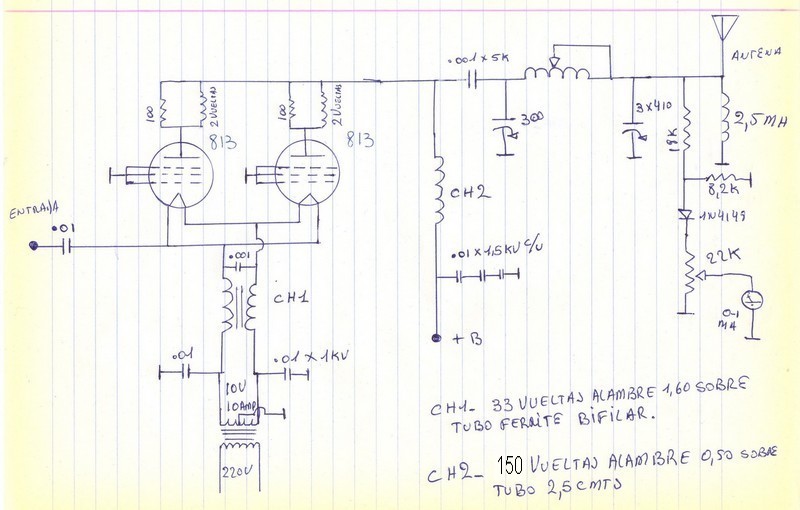 ANTENA
.001 x 5K
100
2 VUELTAS
100
2 VUELTAS
813
813
300
3 x 410
18K
2,5 MH
8,2K
CH2
ENTRADA
.01
1N4149
.001
.01 x 1,5KV C/U
22K
CH1
0-1
MA
+B
.01
.01 x 1KV
10V
10 AMP
220V
CH1- 33 VUELTAS ALAMBRE 1,60 SOBRE
TUBO FERRITE BIFILAR.
CH2- 150 VUELTAS ALAMBRE 0,50 SOBRE
TUBO 2,5 CMTS